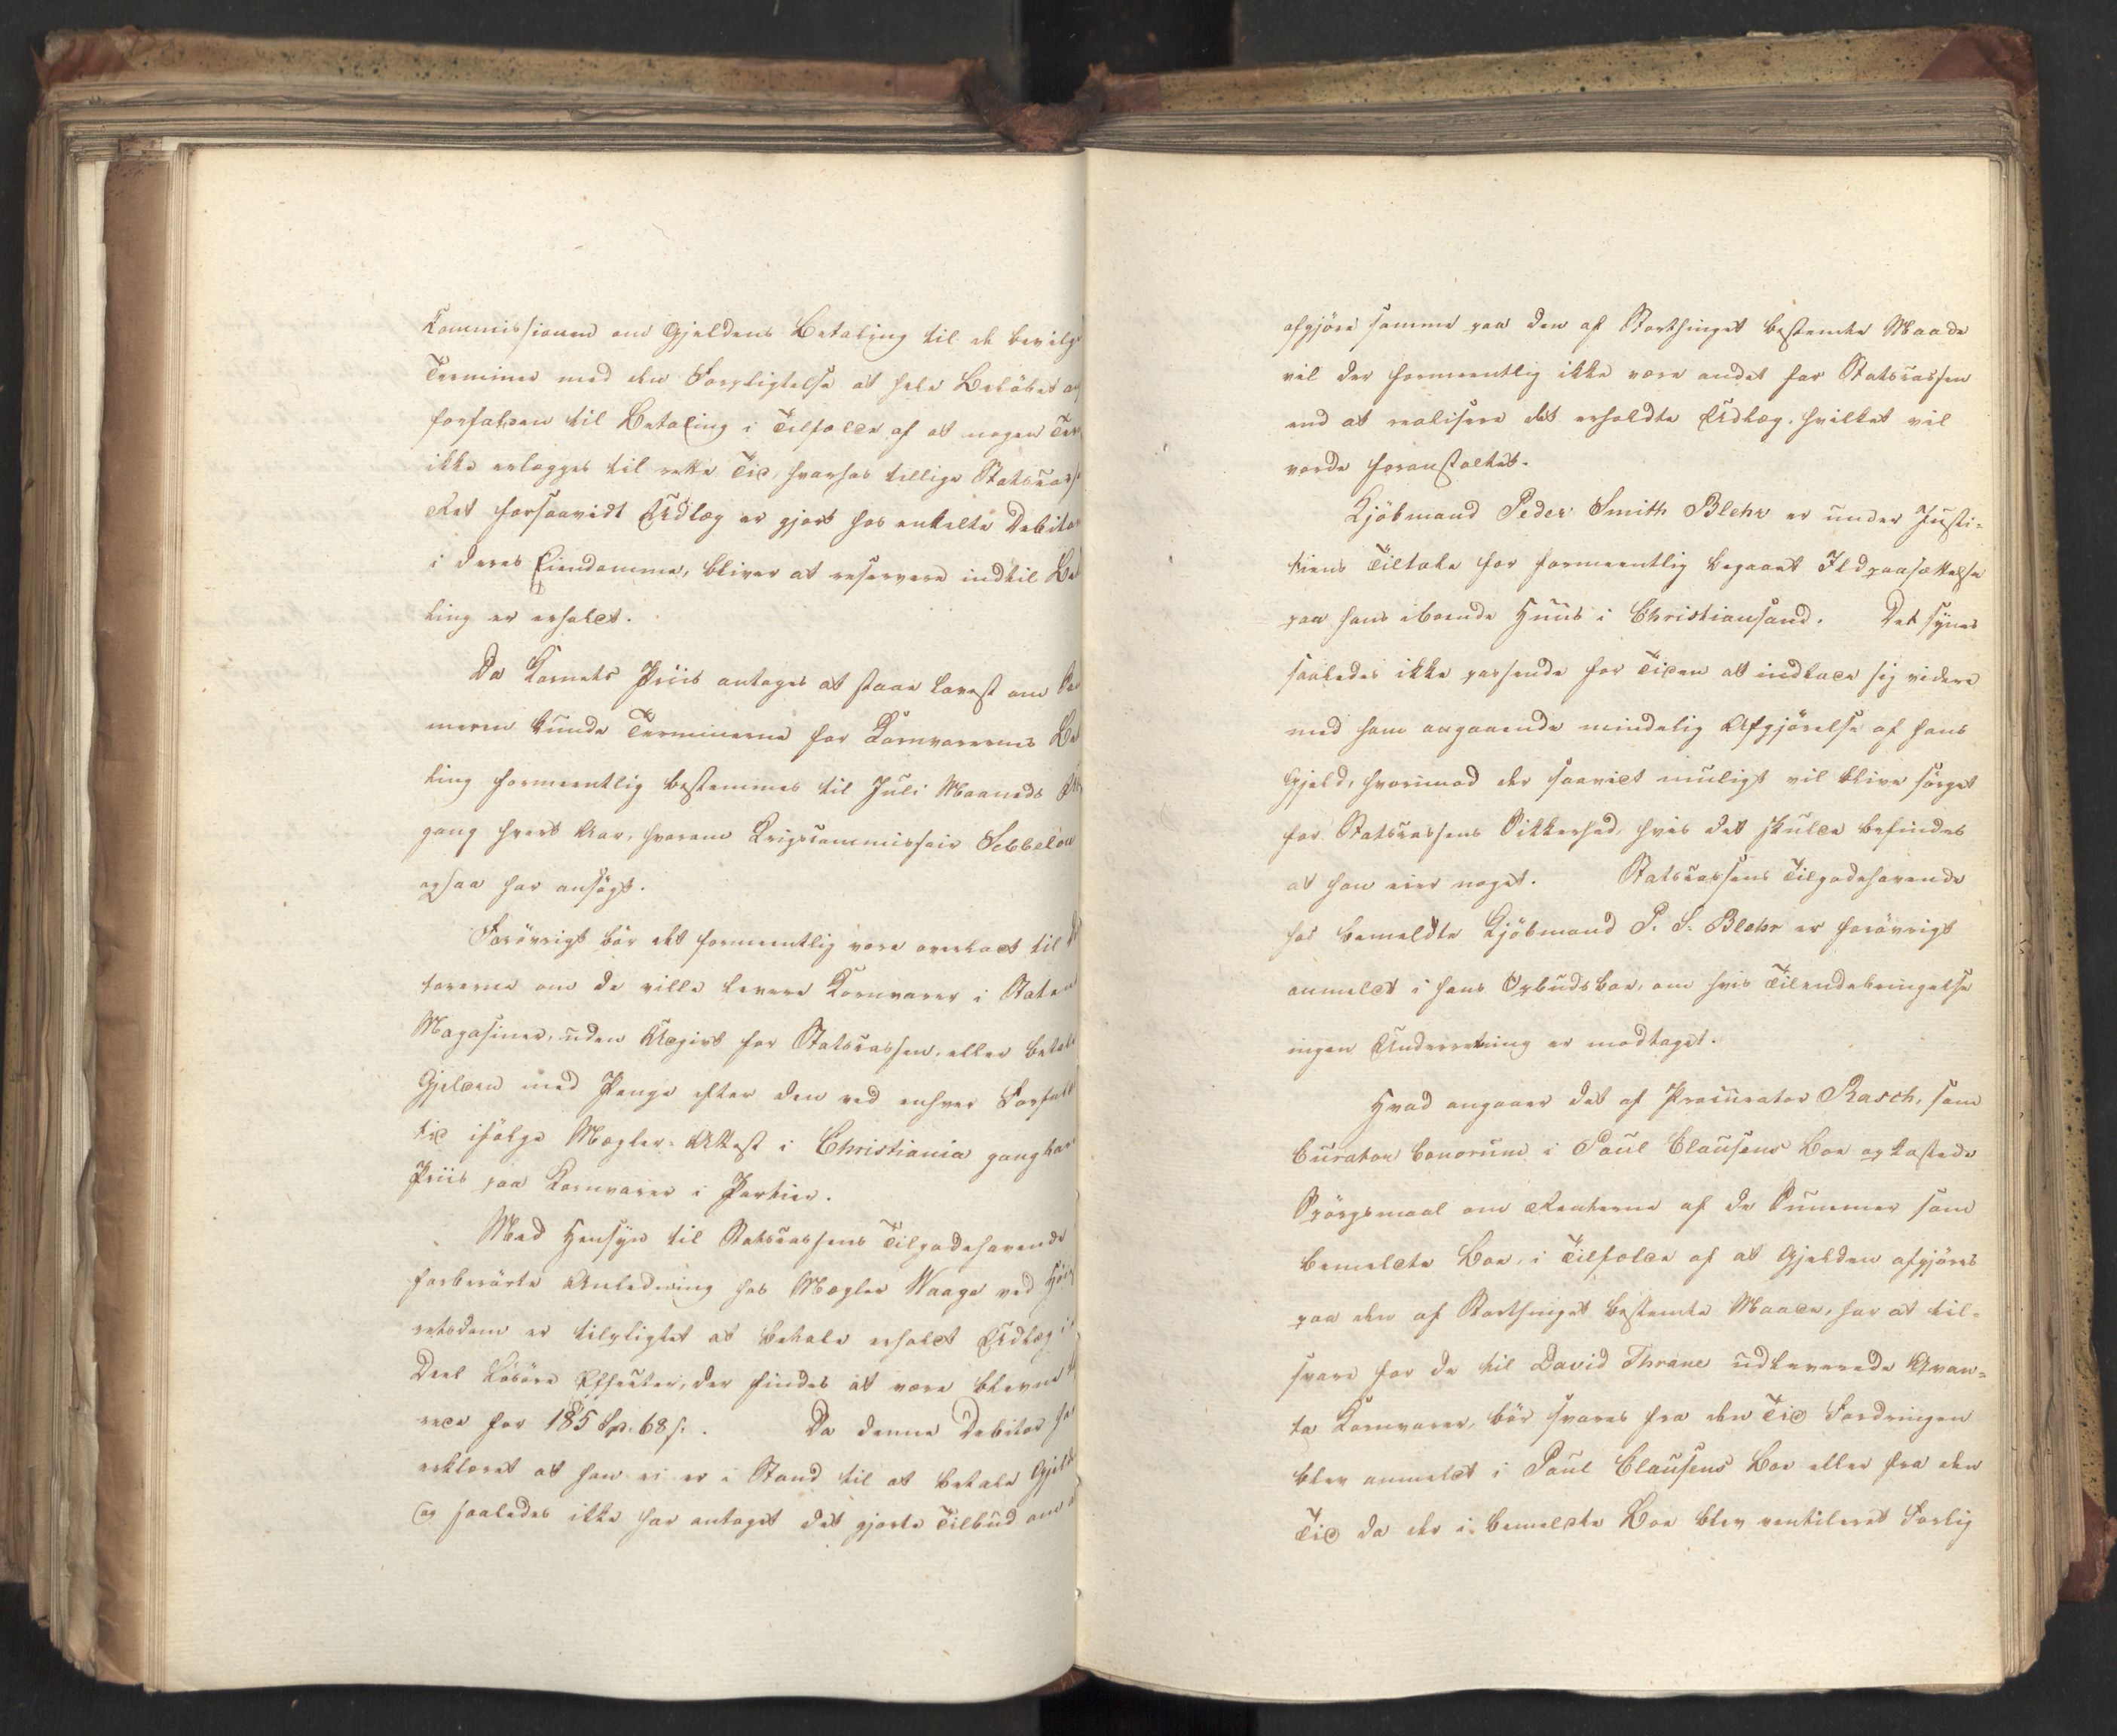 Kommissionen om Gjeldens Betaling til de bevilge
Terminer med den Forpligtelse at hele Beløbet er
forfalden til Betaling i Tilfælde af at nogen Ter
ikke erlægges til rette Tid, hvorhos tillige Statscass
Ret forsaavidt Udlæg er gjort hos enkelte Debito
i deres Eiendomme, bliver at reservere indtil Be
ling er erholdt.
Da Kornets Priis antages at staae lavest om So
meren kunde Terminerne for Kornvarernes Be
ling formeentlig bestemmes til Juli Maaneds
gang hvert Aar, hvorom Krigscommissair Sebbelow
ogsaa har ansøgt.
Forøvrigt bør det formeentlig være overladt til De
torerne om de ville levere Kornvarer i Staten
Magasiner, uden Udgivt for Statscassen, eller betale
Gjelden med Penge efter den ved enhver Forfald
tid ifølge Mægler-Attest i Christiania gangbar
Priis paa Kornvarer i Partier.
Med Hensyn til Statscassens Tilgodehavende
forberørte Anledning hos Mægler Waage ved Høie
retsdom er tilpligtet at betale erholdt Udlæg i
Deel Løsøre Effecter, der findes at være blevne
rede for 185 Spd. 68 s. Da denne Debitor ha
erklæret at han ei er i Stand til at betale Gjeld
og saaledes ikke har antaget det gjorte Tilbud om a
afgjøre samme paa den af Storthinget bestemte Maade
vil der formeentlig ikke være andet for Statscassen
end at realisere det erholdte Udlæg, hvilket vil
vorde foranstaltet.
Kjøbmand Peder Smith Blehr er under Justi-
tiens Tiltale for formeentlig begaaet Ildpaasættelse
paa hans iboende Huus i Christiansand. Det synes
saaledes ikke passende for Tiden at indlade sig videre
med ham angaaende mindelig Afgjørelse af hans
Gjeld, hvorimod der saavidt muligt vil blive sørget
for Statscassens Sikkerhed, hvis det skulde befindes
at han eier noget. Statscassens Tilgodehavende
hos bemeldte Kjøbmand P. S. Blehr er forøvrigt
anmeldt i hans Opbudsboe, om hvis Tilendebringelse
ingen Underretning er modtaget.
Hvad angaaer det af Procurator Rasch, som
Curator bonorum i Paul Clausens Boe opkastede
Spørgsmaal om Renterne af de Summer som
bemeldte Boe, i Tilfælde af at Gjelden afgjøres
paa den af Storthinget bestemte Maade, har at til-
svare for de til David Thrane udleverede Qvan-
ta Kornvarer, bør svares fra den Tid Fordringen
blev anmeldt i Paul Clausens Boe eller fra den
Tid da der i bemeldte Boe blev ventileret Forlig